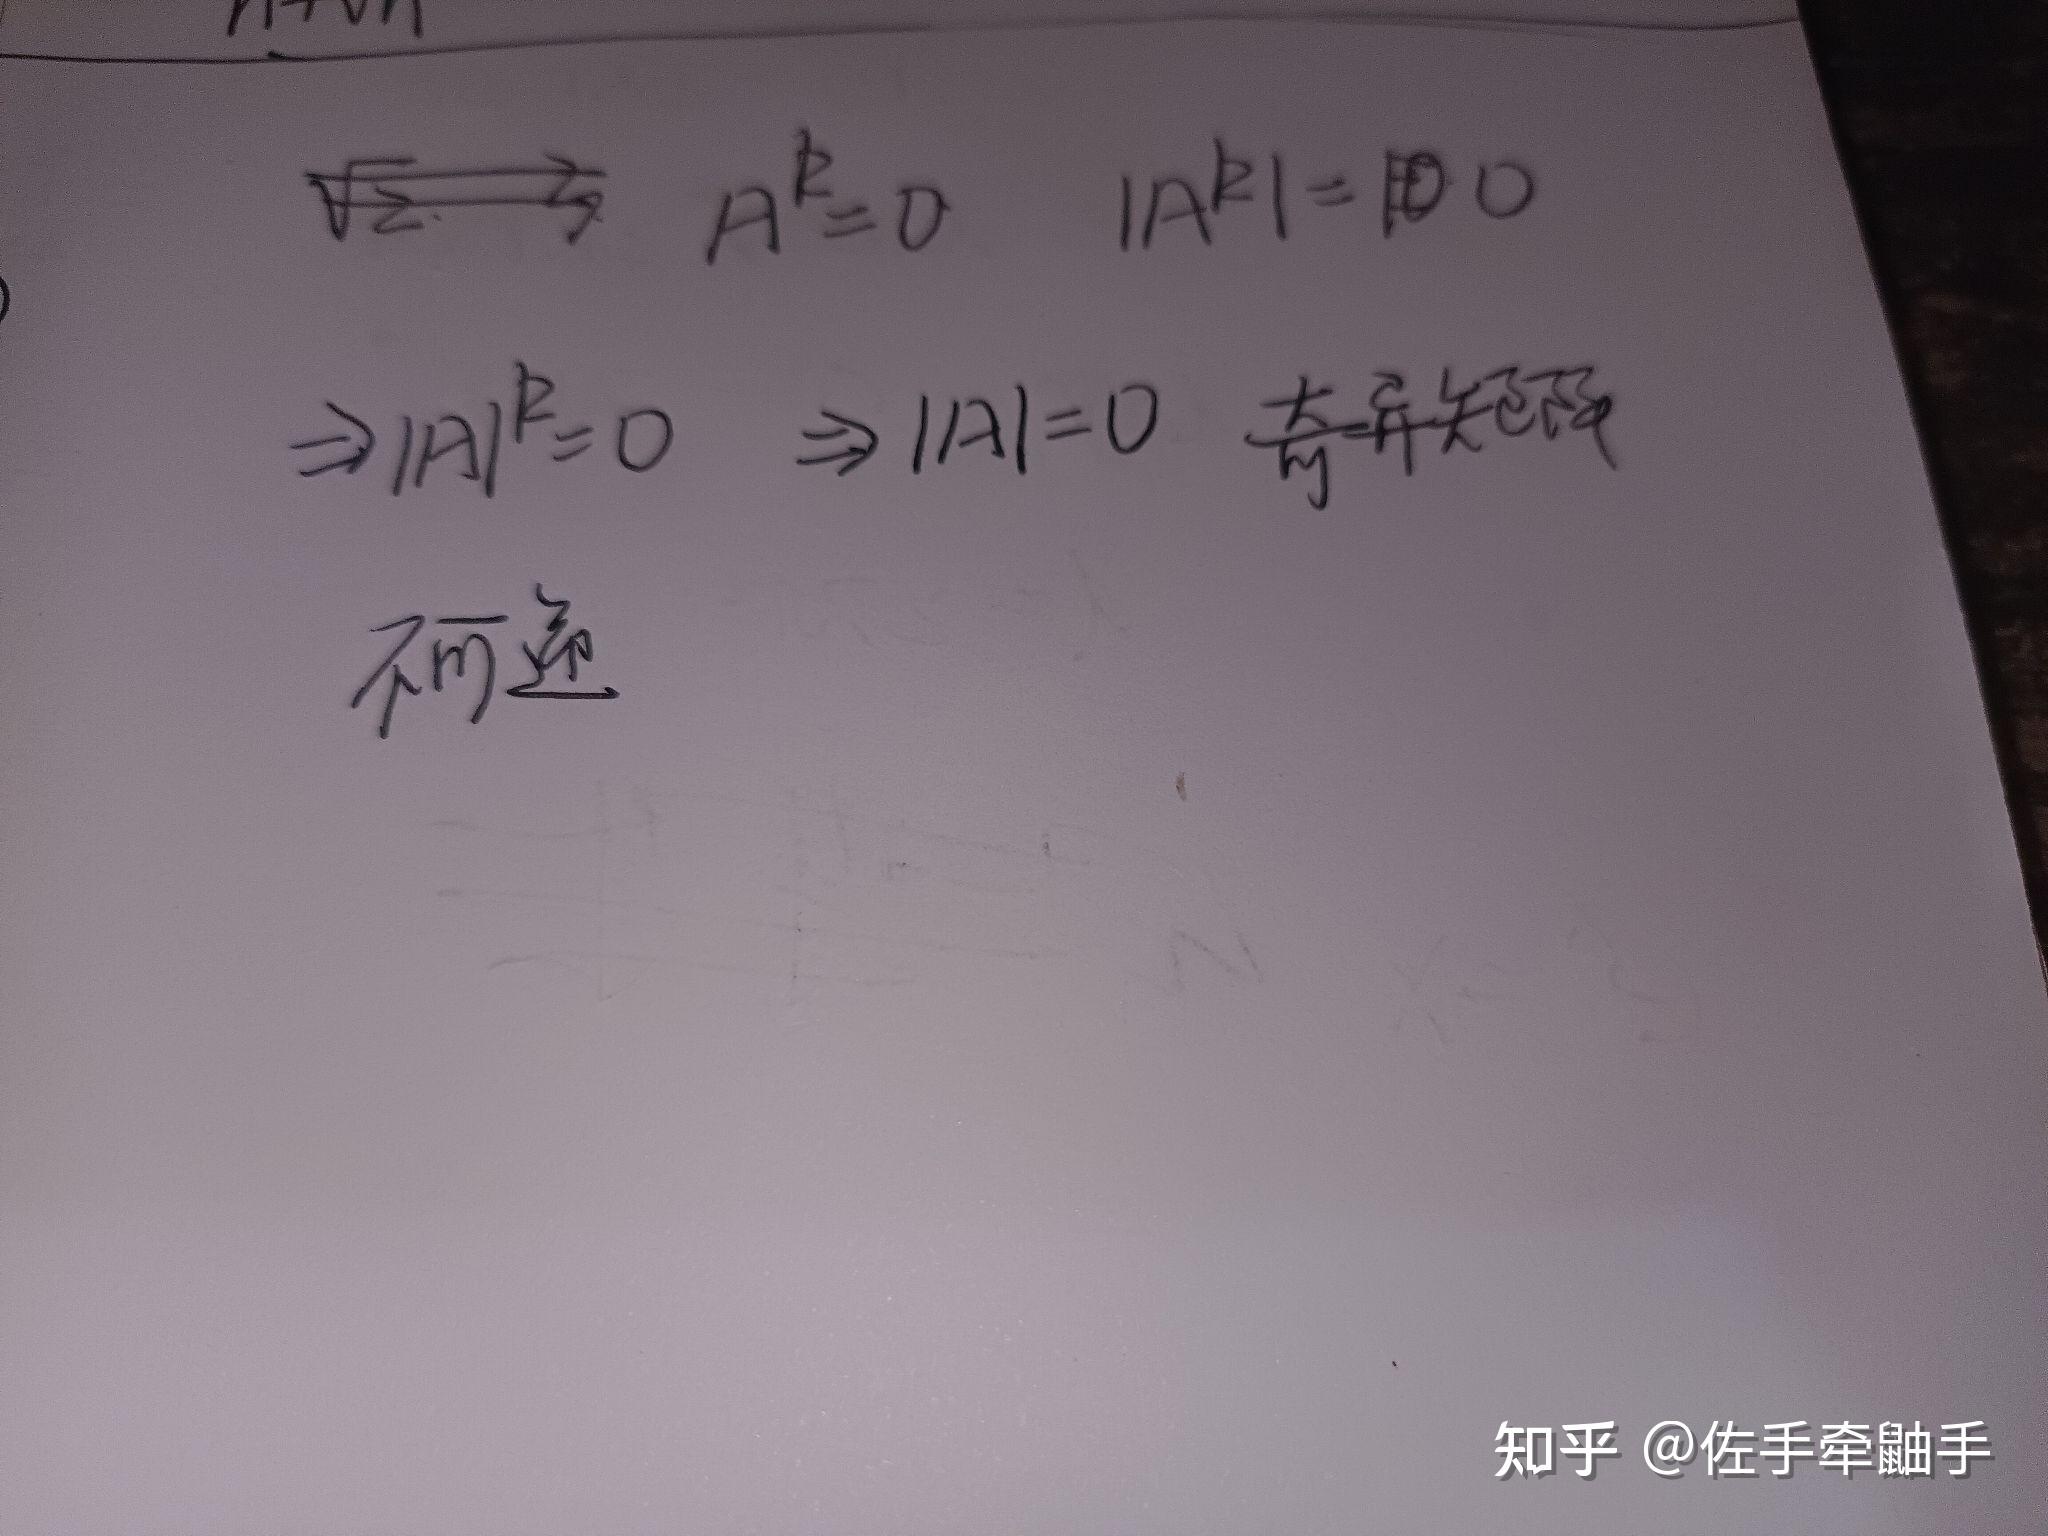 A^k=0 |A^k|=0
⇒|A|^k=0 ⇒|A|=0 奇异矩阵
不可逆
知乎 @佐手牵鼬手